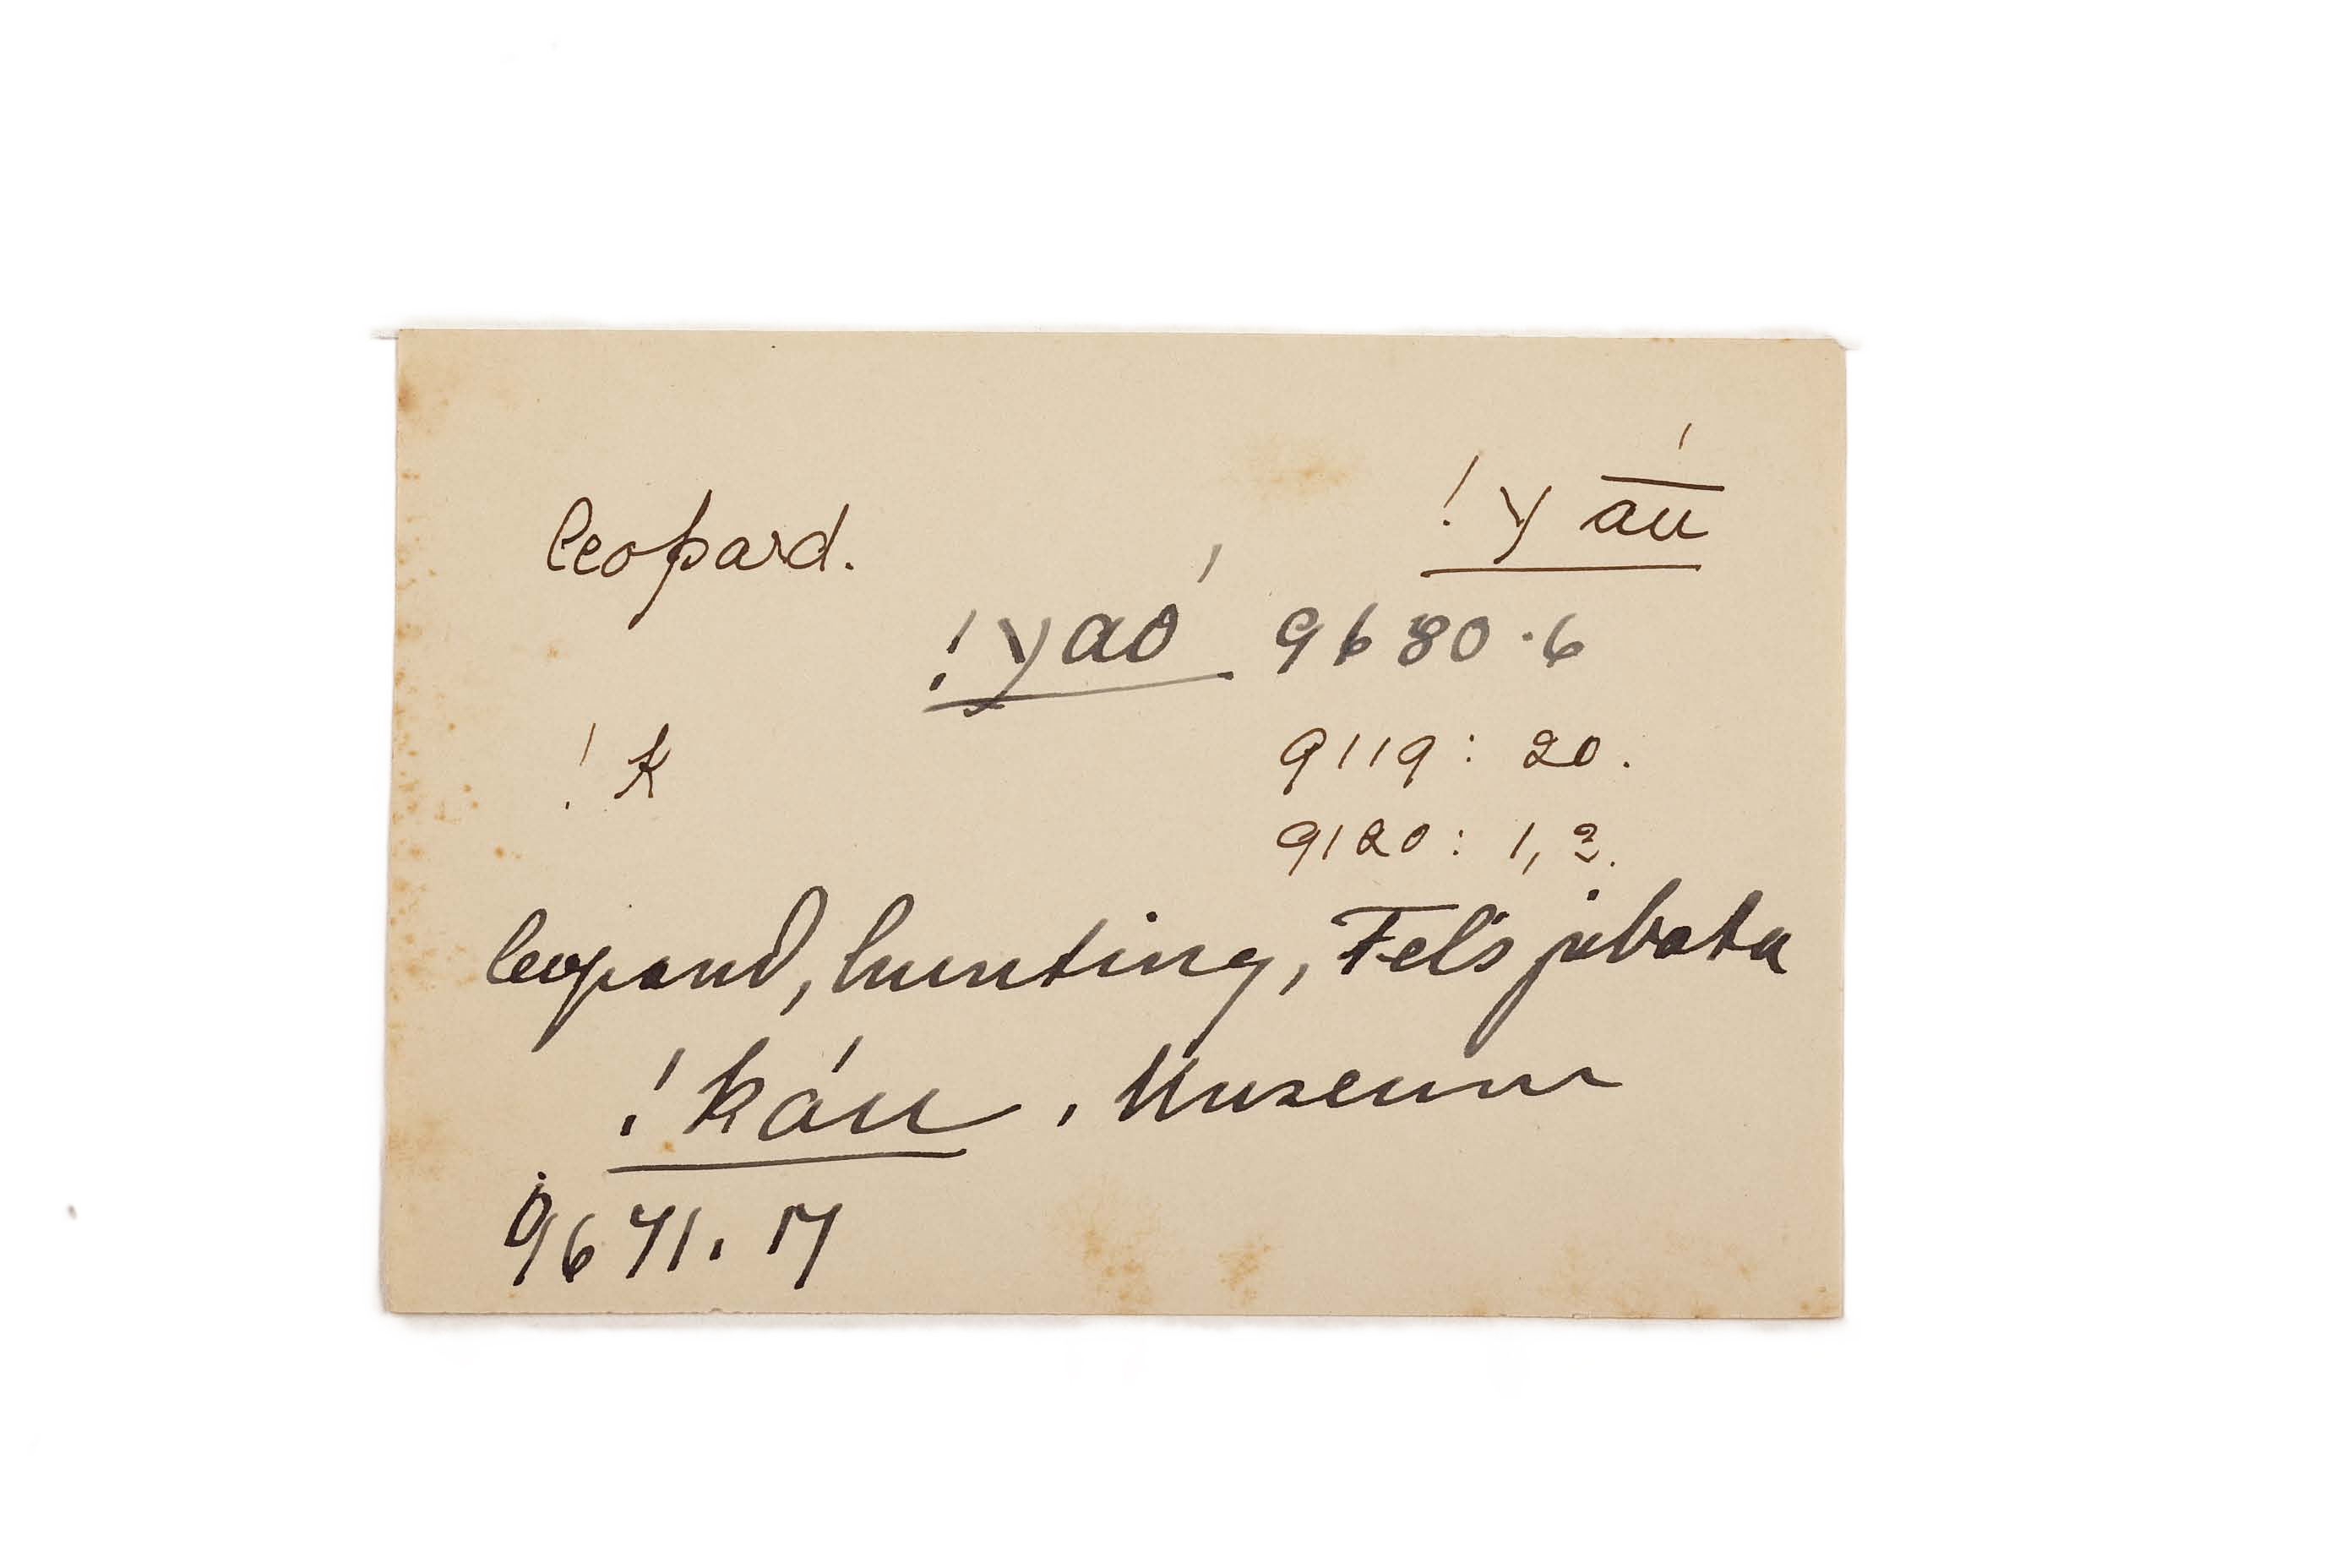 leopard. !γā́u
!γaó 9680.6
!k 9119: 20.
9120: 1, 2.
leopard, hunting, Felis jubata
!káu, Museum
9671. 17